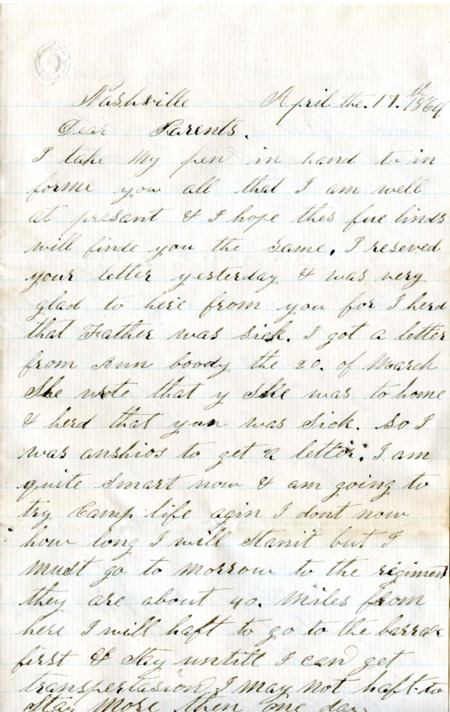 Nashville April the. 17.th 1864
Dear Parents.
I take my pen in hand to in
forme you all that I am well
at presant & I hope thes fue linds
will finde you the same. I reseved
your letter yesterday & was very
glad to here from you for I herd
that Father was sick. I got a letter
from Ann boody the 20. of March
She wrote that y She was to home
& herd that you was sick. so I
was anshios to get a letter. I am
quite smart now & am going to
try Camp life agin I dont now
how long I will stanit but I
must go to morrow to the regiment
they are about 40. miles from
here I will haft to go to the barrax
first & stay untill I can get
transpertasion I may not haft to
stay more then one day